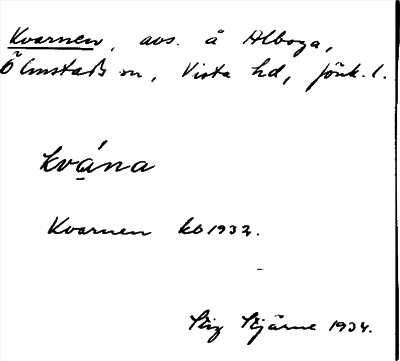 Kvarnen, avs. å Alboga,
Ölmstads sn, Vista hd, Jönk. l.
kvána
Kvarnen kb 1932.
Stig Stjärne 1934.